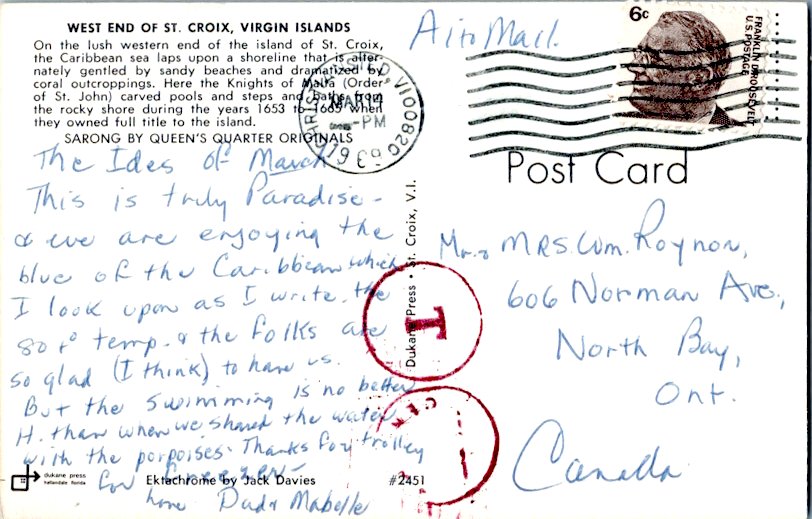 WEST END OF ST. CROIX, VIRGIN ISLANDS
On the lush western end of the island of St. Croix,
the Caribbean sea laps upon a shoreline that is alter-
nately gentled by sandy beaches and dramatized by
coral outcroppings. Here the Knights of Malta (Order
of St. John) carved pools and steps and baths from
the rocky shore during the years 1653 to 1665 when
they owned full title to the island.
SARONG BY QUEEN'S QUARTER ORIGINALS
The Ides of March
This is truly Paradise -
& we are enjoying the
blue of the Caribbean which
I look upon as I write. the
80+° temp. & the folks are
so glad (I think) to have us.
But the swimming is no better
H. than when we shared the water
with the porpoises. Thanks for trolley
for
Dud & Mabelle
dukane press
hallandale florida
Ektachrome by Jack Davies #2451
Dukane Press • St. Croix, V.I.
Air Mail.
CHRISTIANSTED VI 00820
MAR 14
PM
6c
FRANKLIN D. ROOSEVELT
U.S. POSTAGE
Post Card
Mr. & MRS. Wm. Roynon,
606 Norman Ave.,
North Bay,
Ont.
Canada
T